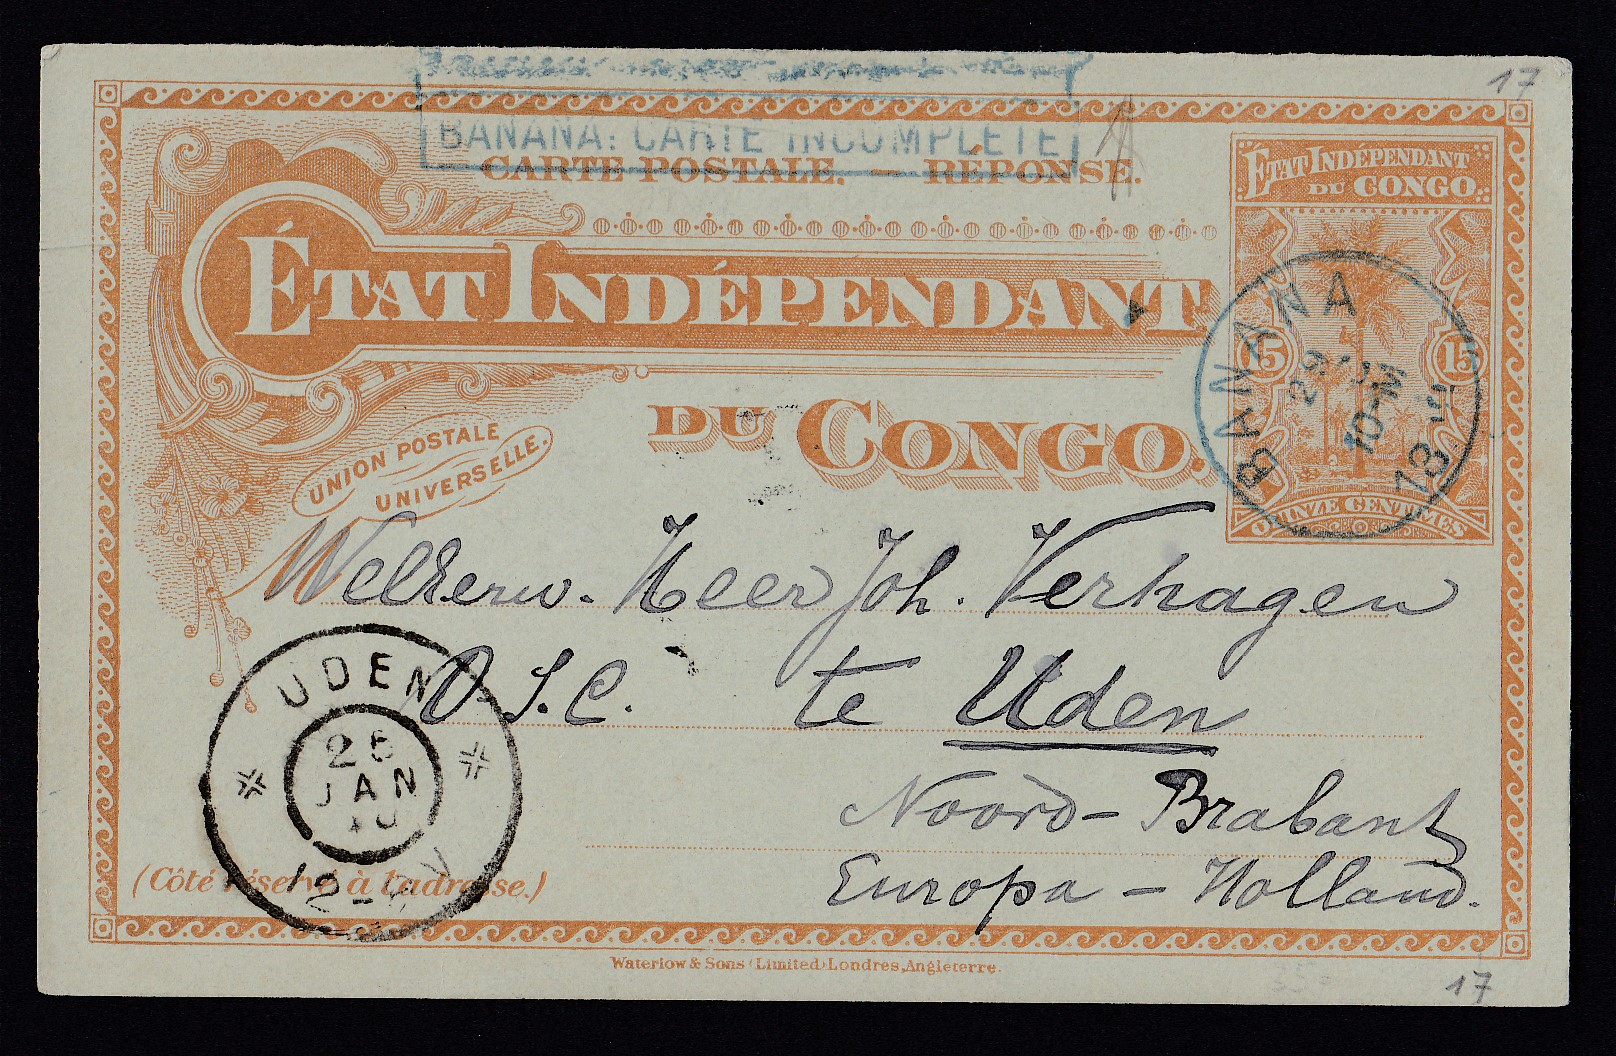 17
BANANA: CARTE INCOMPLETE
CARTE POSTALE. — RÉPONSE.
ÉTAT INDÉPENDANT
DU CONGO.
ÉTAT INDÉPENDANT
DU CONGO.
UNION POSTALE
UNIVERSELLE.
15 15
QUINZE CENTIMES
BANANA
29
10-M
13
WelEerw. Heer Joh. Verhagen
O.S.C. te Uden
Noord-Brabant
Europa - Holland.
UDEN
JAN
12-
(Côté réservé à l'adresse.)
Waterlow & Sons (Limited) Londres, Angleterre.
17